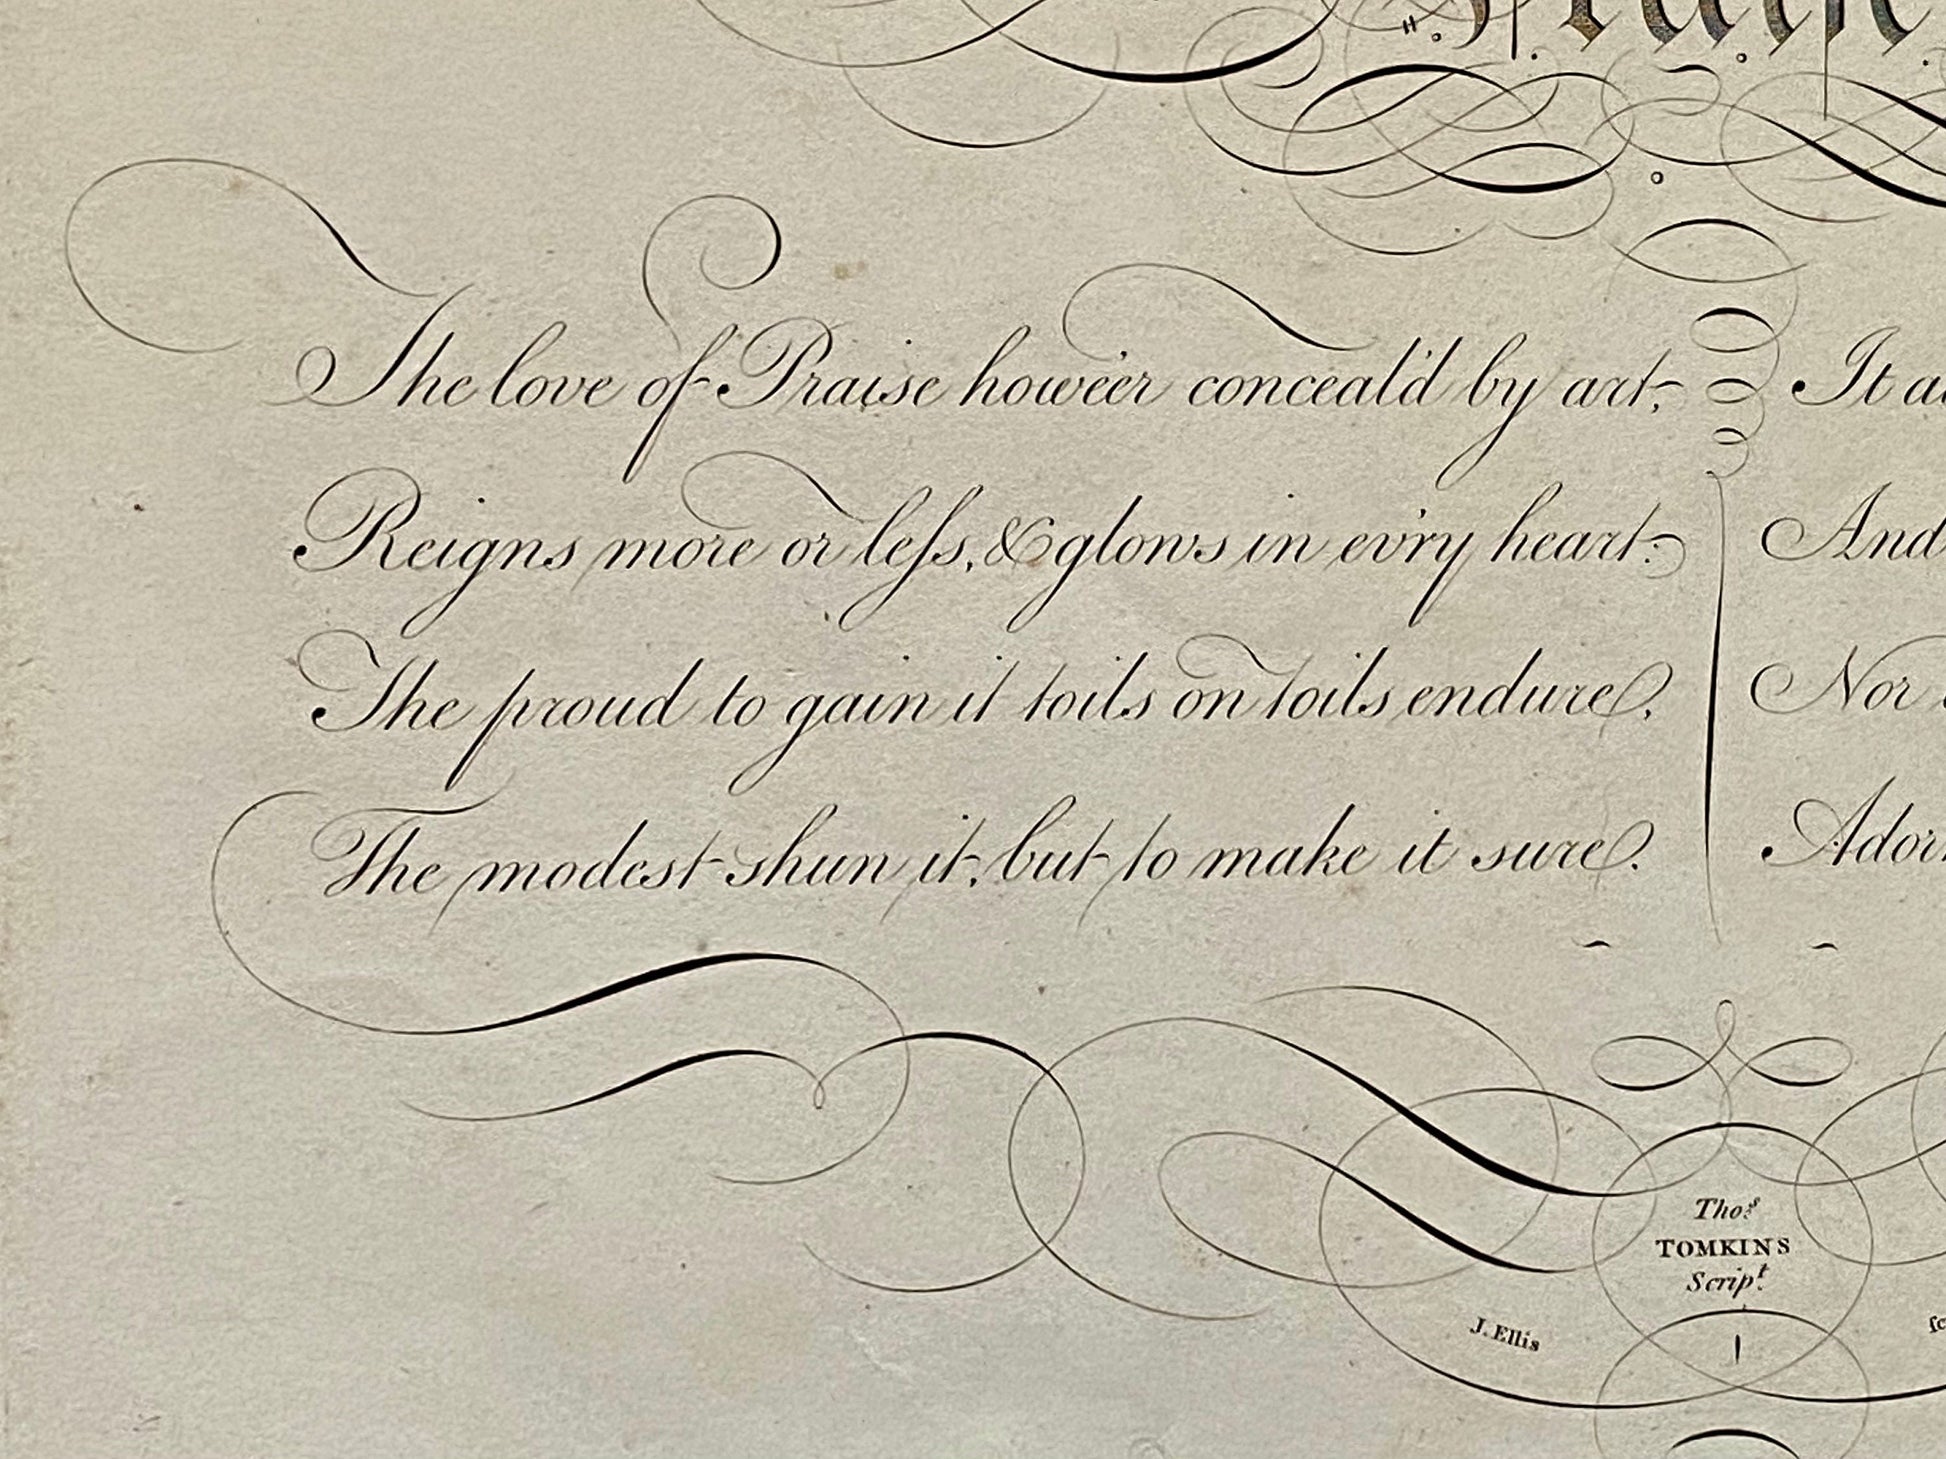 The love of Praise howe'er conceal'd by art,
Reigns more or leſs, & glows in ev'ry heart:
The proud to gain it toils on toils endure,
The modest shun it, but to make it sure.
It
And
Nor
Thos.
TOMKINS
Script.
J. Ellis
1